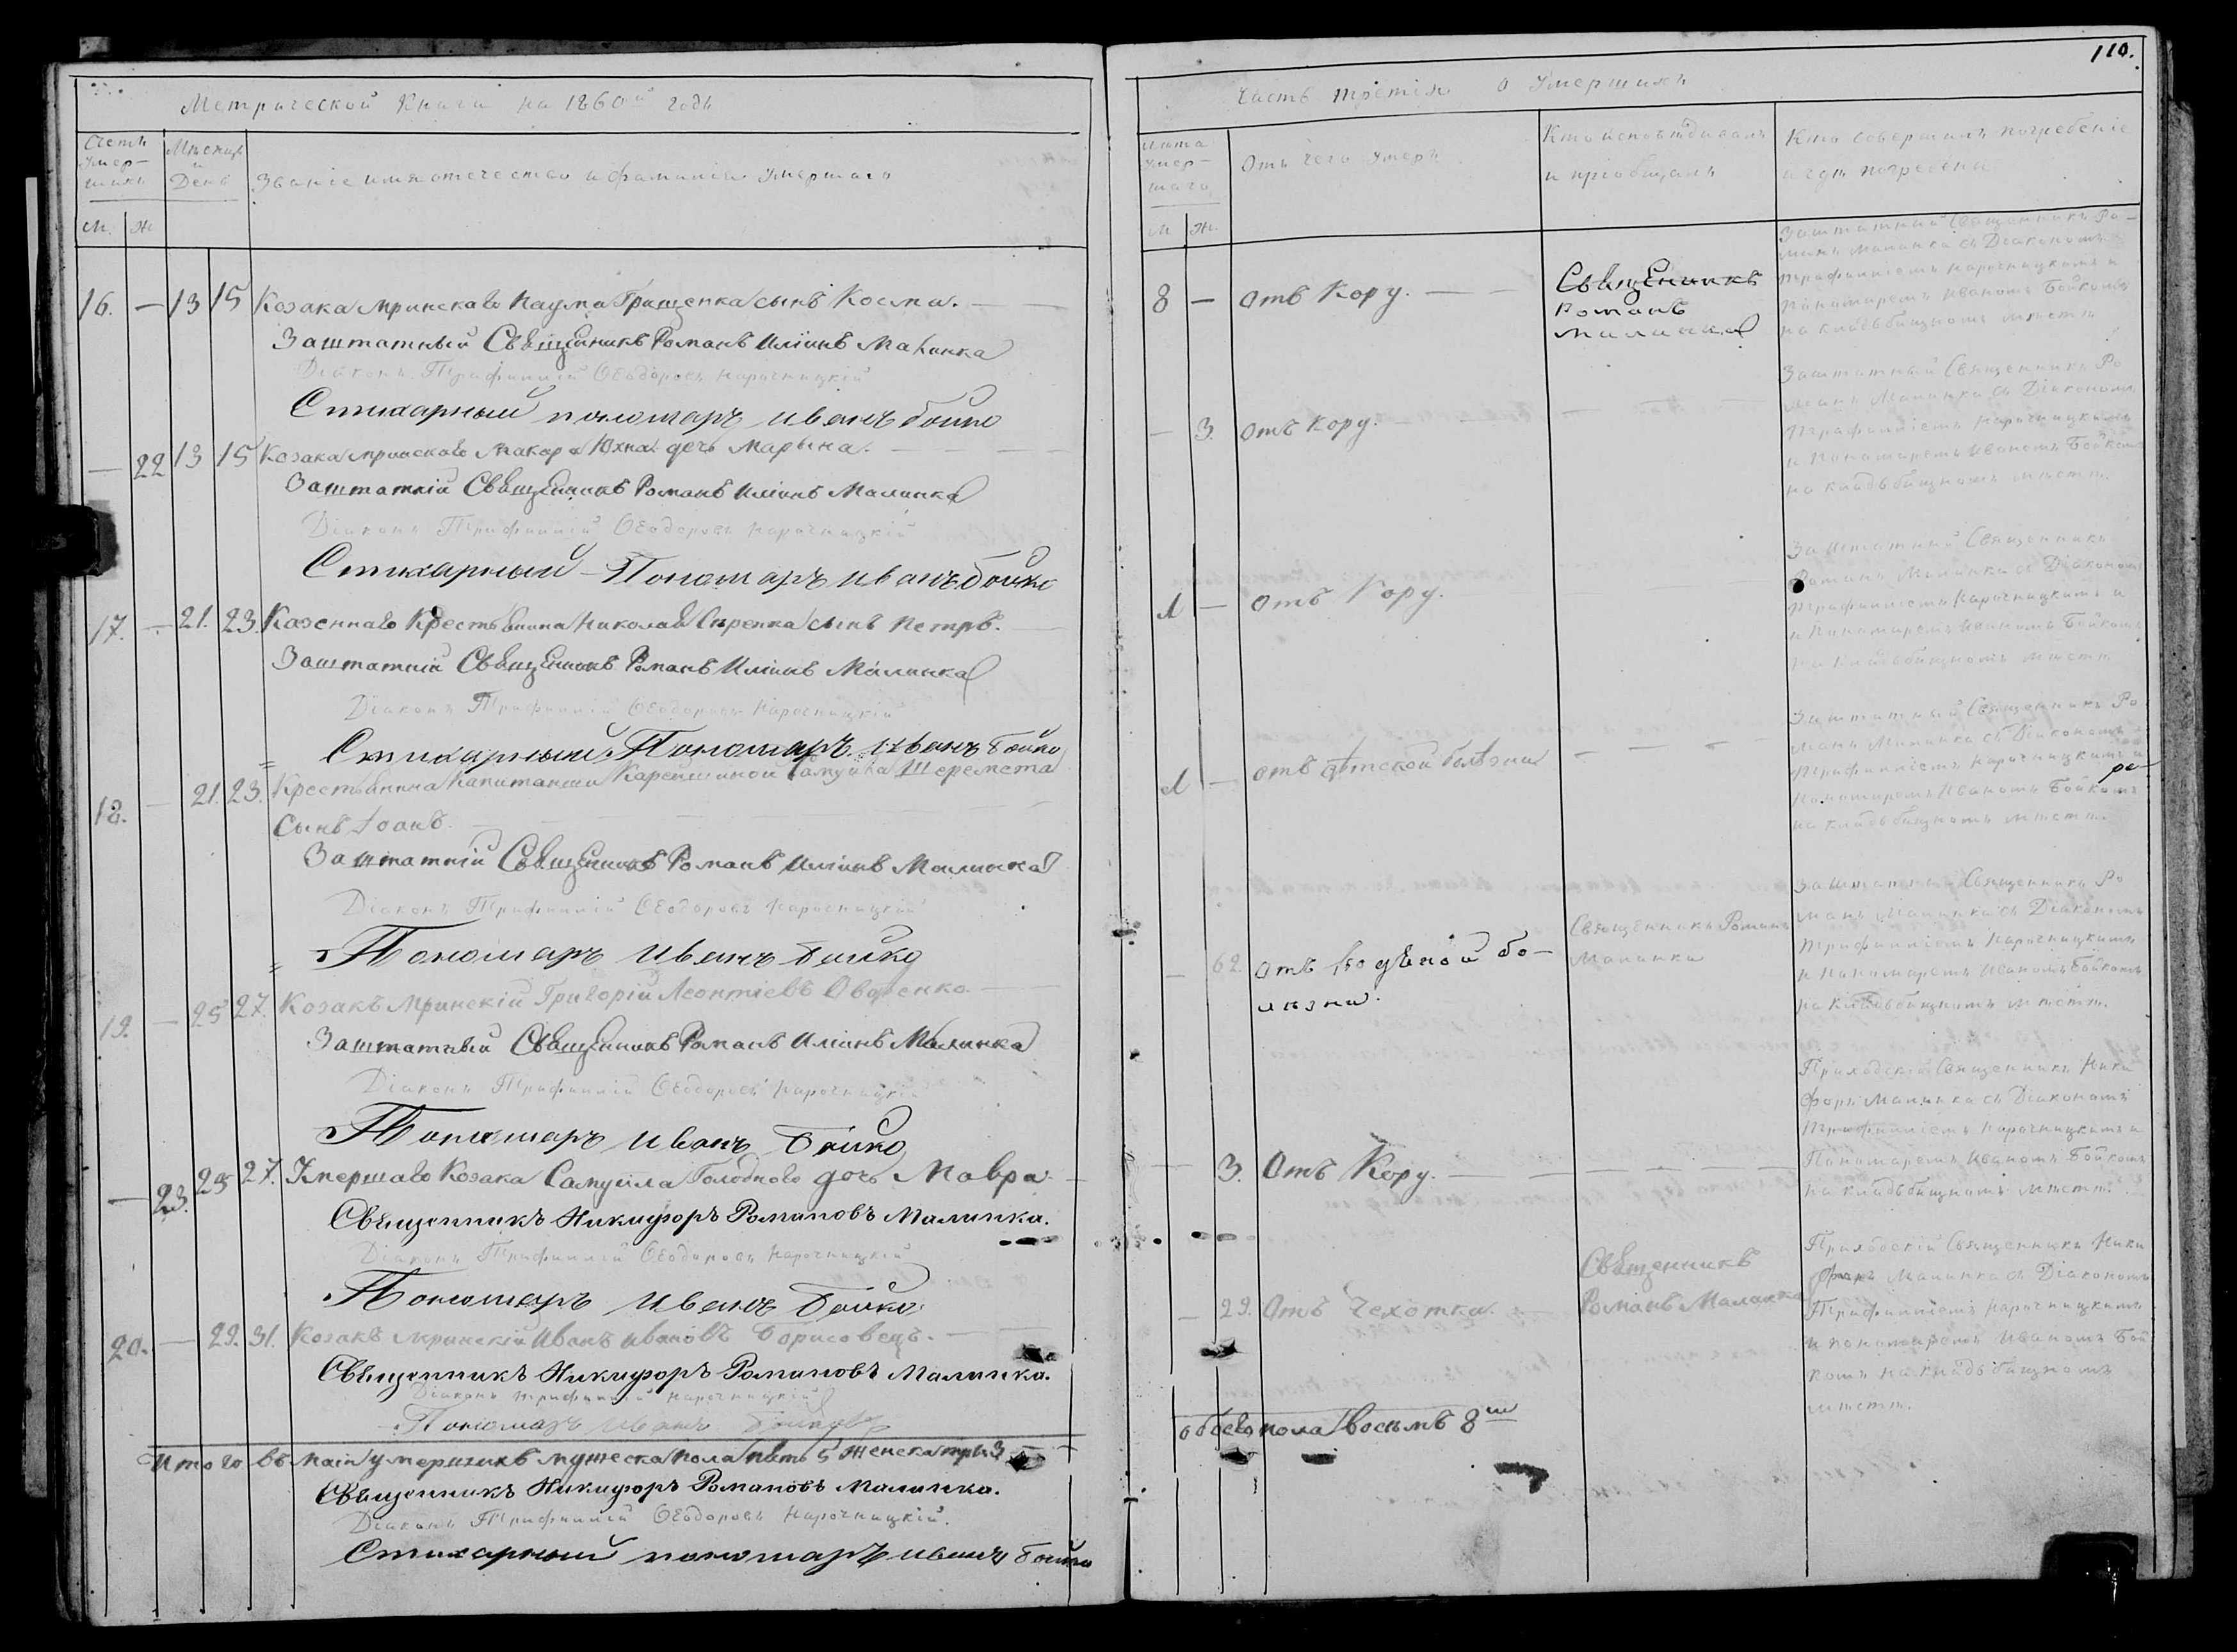 110.
Метрической Книги на 1860й годъ
Счетъ Умершихъ
Мѣсяцъ и День
Званіе имя отечество и фамилія Умершаго
М. Ж
16. — 13 15 Козака мринскаго Наума Грищенка сынъ Косма. —
Заштатный Священникъ Романъ Иліинъ Малинка
Діаконъ Трифиллій Ѳеодоровъ Нарочницкій
Стихарный пономаръ Иванъ Бойко
— 22 13 15 Козака мринскаго Макара Юхна дочь Марына. —
Заштатній Священникъ Романъ Иліинъ Малинка
Діаконъ Трифиллій Ѳеодоровъ Нарочницкій
Стихарный Пономаръ Иванъ Бойко
17. — 21. 23. Казеннаго Крестьянина Николая сынъ Петръ. —
Заштатній Священникъ Романъ Иліинъ Малинка
Діаконъ Трифиллій Ѳеодоровъ Нарочницкій
Стихарный Пономаръ Иванъ Бойко
18. — 21. 23. Крестьянина Капитанши Самуила Шеремета
Сынъ Іоанъ.
Заштатній Священникъ Романъ Иліинъ Малинка
Діаконъ Трифиллій Ѳеодоровъ Нарочницкій
Пономаръ Иванъ Бойко
19. — 25 27. Козакъ Мринскій Григорій Леонтіевъ —
Заштатный Священникъ Романъ Иліинъ Малинка
Діаконъ Трифиллій Ѳеодоровъ Нарочницкій
Пономаръ Иванъ Бойко
— 23. 25 27. Умершаго Козака Самуіла Голоднаго дочь Мавра. —
Священникъ Никифоръ Романовъ Малинка.
Діаконъ Трифиллій Ѳеодоровъ Нарочницкій
Пономаръ Иванъ Бойко
20. — 29. 31. Козакъ мринскій Иванъ Ивановъ Борисовецъ. —
Священникъ Никифоръ Романовъ Малинка.
Діаконъ Трифиллій Нарочницкій
Пономаръ Иванъ Бойко
Итого въ Маіи умершихъ мужеска пола пять 5 Женска три 3
Священникъ Никифоръ Романовъ Малинка.
Діаконъ Трифиллій Ѳеодоровъ Нарочницкій.
Стихарный пономаръ Иванъ Бойко
Часть третія о Умершихъ
Лѣта Умершаго
Отъ чего Умеръ
Кто исповѣдывалъ
и пріобщалъ
Кто совершилъ погребеніе
и гдѣ погребены
М Ж.
8 — отъ Кору. —
Священникъ
Романъ
Малинка
Заштатный Священникъ Ро-
манъ Малинка съ Діакономъ
Трифилліемъ Нарочницкимъ и
Пономаремъ Иваномъ Бойкомъ
на кладьбищномъ мѣстѣ
— 3. отъ Кору. —
Заштатный Священникъ Ро
манъ Малинка съ Діакономъ
Трифилліемъ Нарочницкимъ
и Пономаремъ Иваномъ Бойкомъ
на кладьбищномъ мѣстѣ.
1 — отъ Кору.
Заштатный Священникъ
Романъ Малинка съ Діакономъ
Трифилліемъ Нарочницкимъ и
и Пономаремъ Иваномъ Бойкомъ
на кладьбищномъ мѣстѣ
1 — отъ дѣтской болѣзни — — —
Заштатный Священникъ Ро
манъ Малинка съ Діакономъ
Трифилліемъ Нарочницкимъ и
Пономаремъ Иваномъ Бойкомъ
на кладьбищномъ мѣстѣ.
— 62. отъ водяной бо-
лѣзни.
Священникъ Романъ
Малинка
Заштатный Священникъ Ро
манъ Малинка съ Діакономъ
Трифилліемъ Нарочницкимъ
и Пономаремъ Иваномъ Бойкомъ
на кладьбищномъ мѣстѣ.
— 3. Отъ Кору. — — —
Приходскій Священникъ Ники
форъ Малинка съ Діакономъ
Трифилліемъ Нарочницкимъ и
Пономаремъ Иваномъ Бойкомъ
на кладьбищномъ мѣстѣ.
— 29. Отъ Чехотка.
Священникъ
Романъ Малинка
Приходскій Священникъ Ники
форъ Малинка съ Діакономъ
Трифилліемъ Нарочницкимъ
и пономаремъ Иваномъ Бой
комъ на кладьбищномъ
мѣстѣ.
обоего пола восемь 8мъ